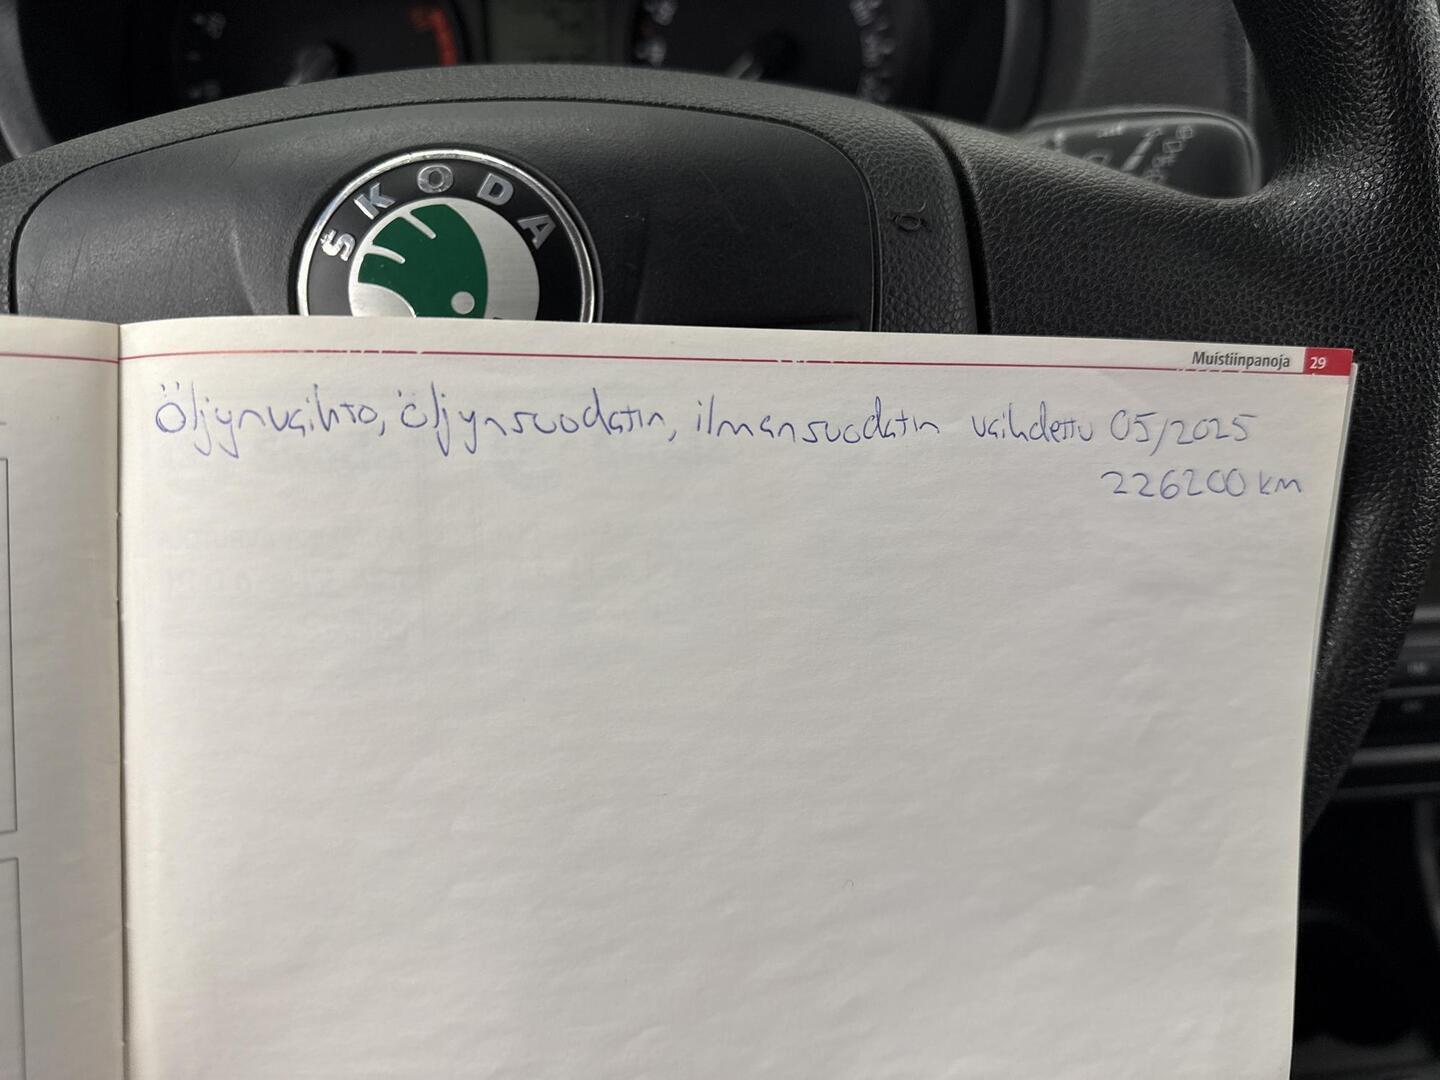 ŠKODA
Muistiinpanoja 29
Öljynvaihto, öljynsuodatin, ilmansuodatin vaihdettu 05/2025
226200 km